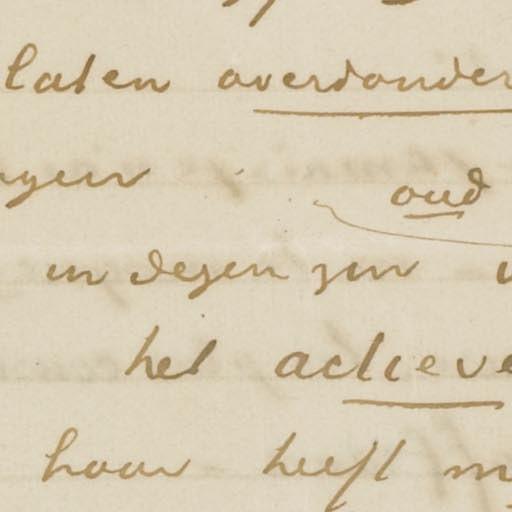 laten overdonder
oud
in dezen zin
het actieve
haar heeft m